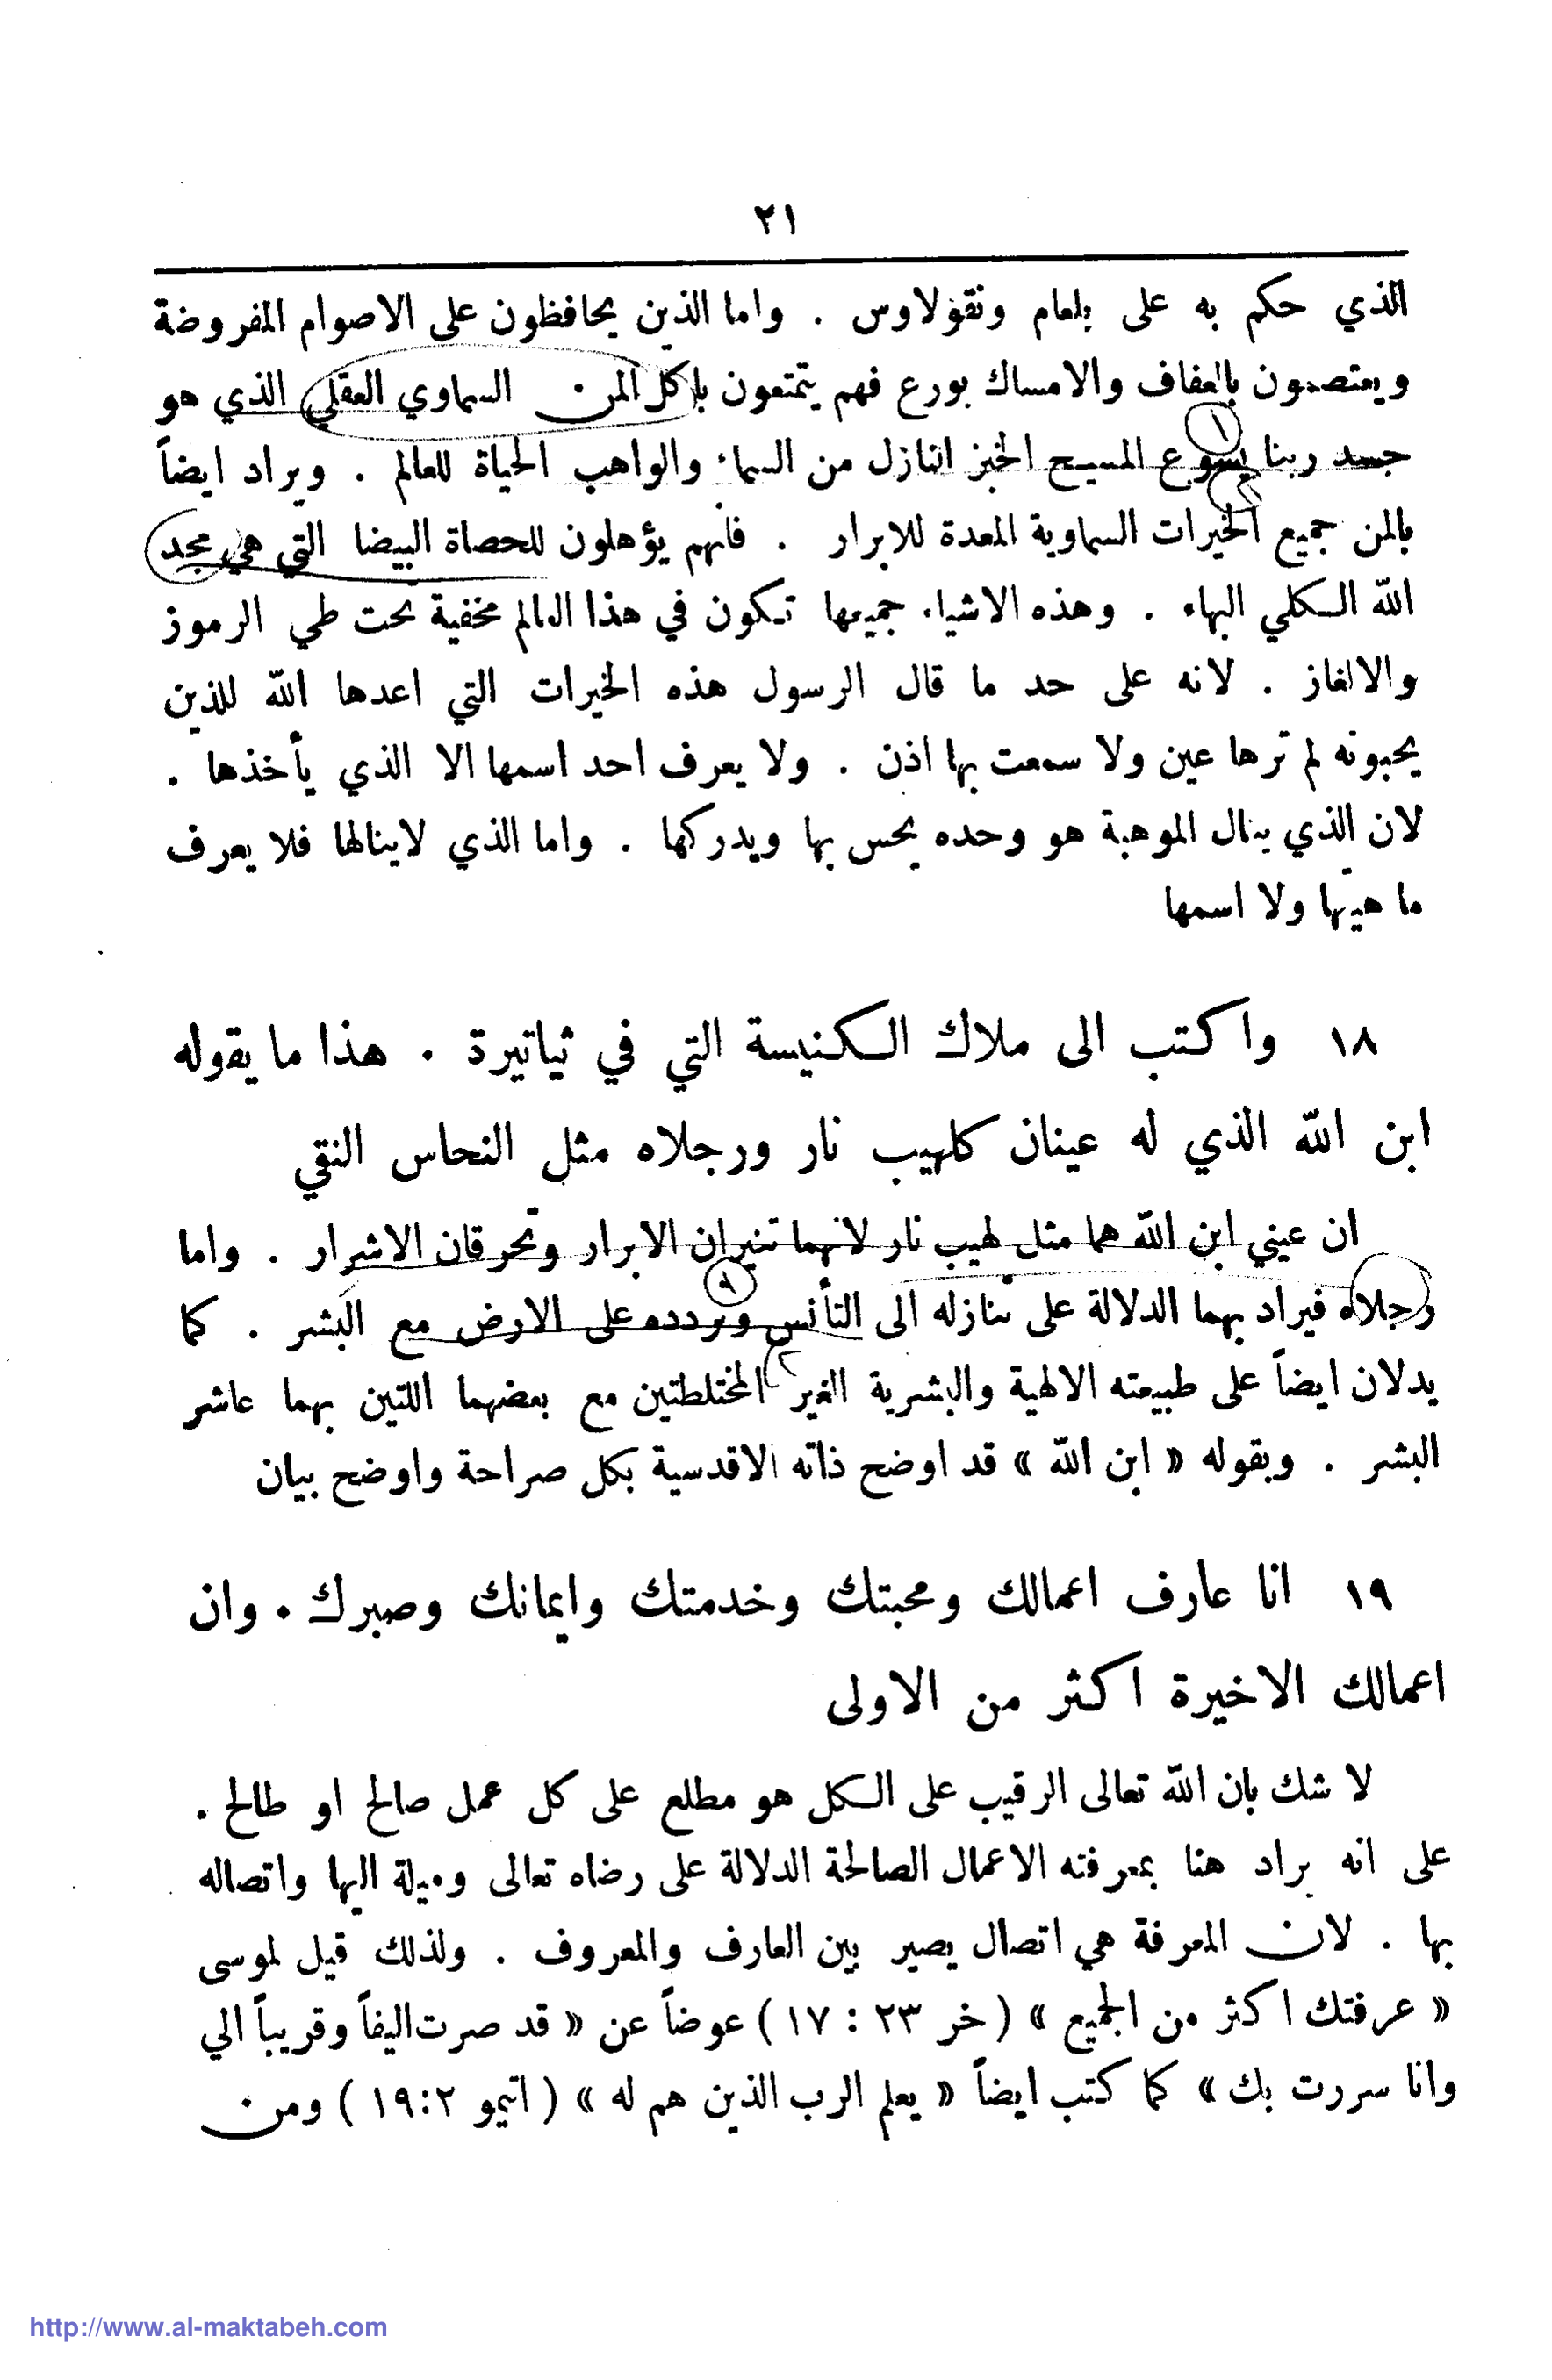 ٢١
الذي حكم به على بلعام ونقولاوس . واما الذين يحافظون على الاصوام المفروضة
ويعتصمون بالعفاف والامساك بورع فهم يتمتعون باكل المن السماوي العقلي الذي هو
جسد ربنا يسوع المسيح الخبز النازل من السماء والواهب الحياة للعالم . ويراد ايضاً
بالمن جميع الخيرات السماوية المعدة للابرار . فانهم يؤهلون للحصاة البيضا التي هي مجد
الله الكلي البهاء . وهذه الاشياء جميعها تكون في هذا العالم مخفية تحت طي الرموز
والالغاز . لانه على حد ما قال الرسول هذه الخيرات التي اعدها الله للذين
يحبونه لم ترها عين ولا سمعت بها اذن . ولا يعرف احد اسمها الا الذي يأخذها .
لان الذي ينال الموهبة هو وحده يحس بها ويدركها . واما الذي لاينالها فلا يعرف
ما هيتها ولا اسمها
١٨ واكتب الى ملاك الكنيسة التي في ثياتيرة . هذا ما يقوله
ابن الله الذي له عينان كلهيب نار ورجلاه مثل النحاس النقي
ان عيني ابن الله هما مثل لهيب نار لانهما تنيران الابرار وتحرقان الاشرار . واما
رجلاه فيراد بهما الدلالة على تنازله الى التأنس وتردده على الارض مع البشر . كما
يدلان ايضاً على طبيعته الالهية والبشرية الغير المختلطتين مع بعضهما اللتين بهما عاشر
البشر . وبقوله « ابن الله » قد اوضح ذاته الاقدسية بكل صراحة واوضح بيان
١٩ انا عارف اعمالك ومحبتك وخدمتك وايمانك وصبرك . وان
اعمالك الاخيرة اكثر من الاولى
لا شك بان الله تعالى الرقيب على الكل هو مطلع على كل عمل صالح او طالح .
على انه يراد هنا بمعرفته الاعمال الصالحة الدلالة على رضاه تعالى وميلة اليها واتصاله
بها . لان المعرفة هي اتصال يصير بين العارف والمعروف . ولذلك قيل لموسى
« عرفتك اكثر من الجميع » ( خر ٢٣ : ١٧ ) عوضاً عن « قد صرت اليفاً وقريباً الي
وانا سررت بك » كما كتب ايضاً « يعلم الرب الذين هم له » ( اتيمو ١٩:٢ ) ومن
http://www.al-maktabeh.com